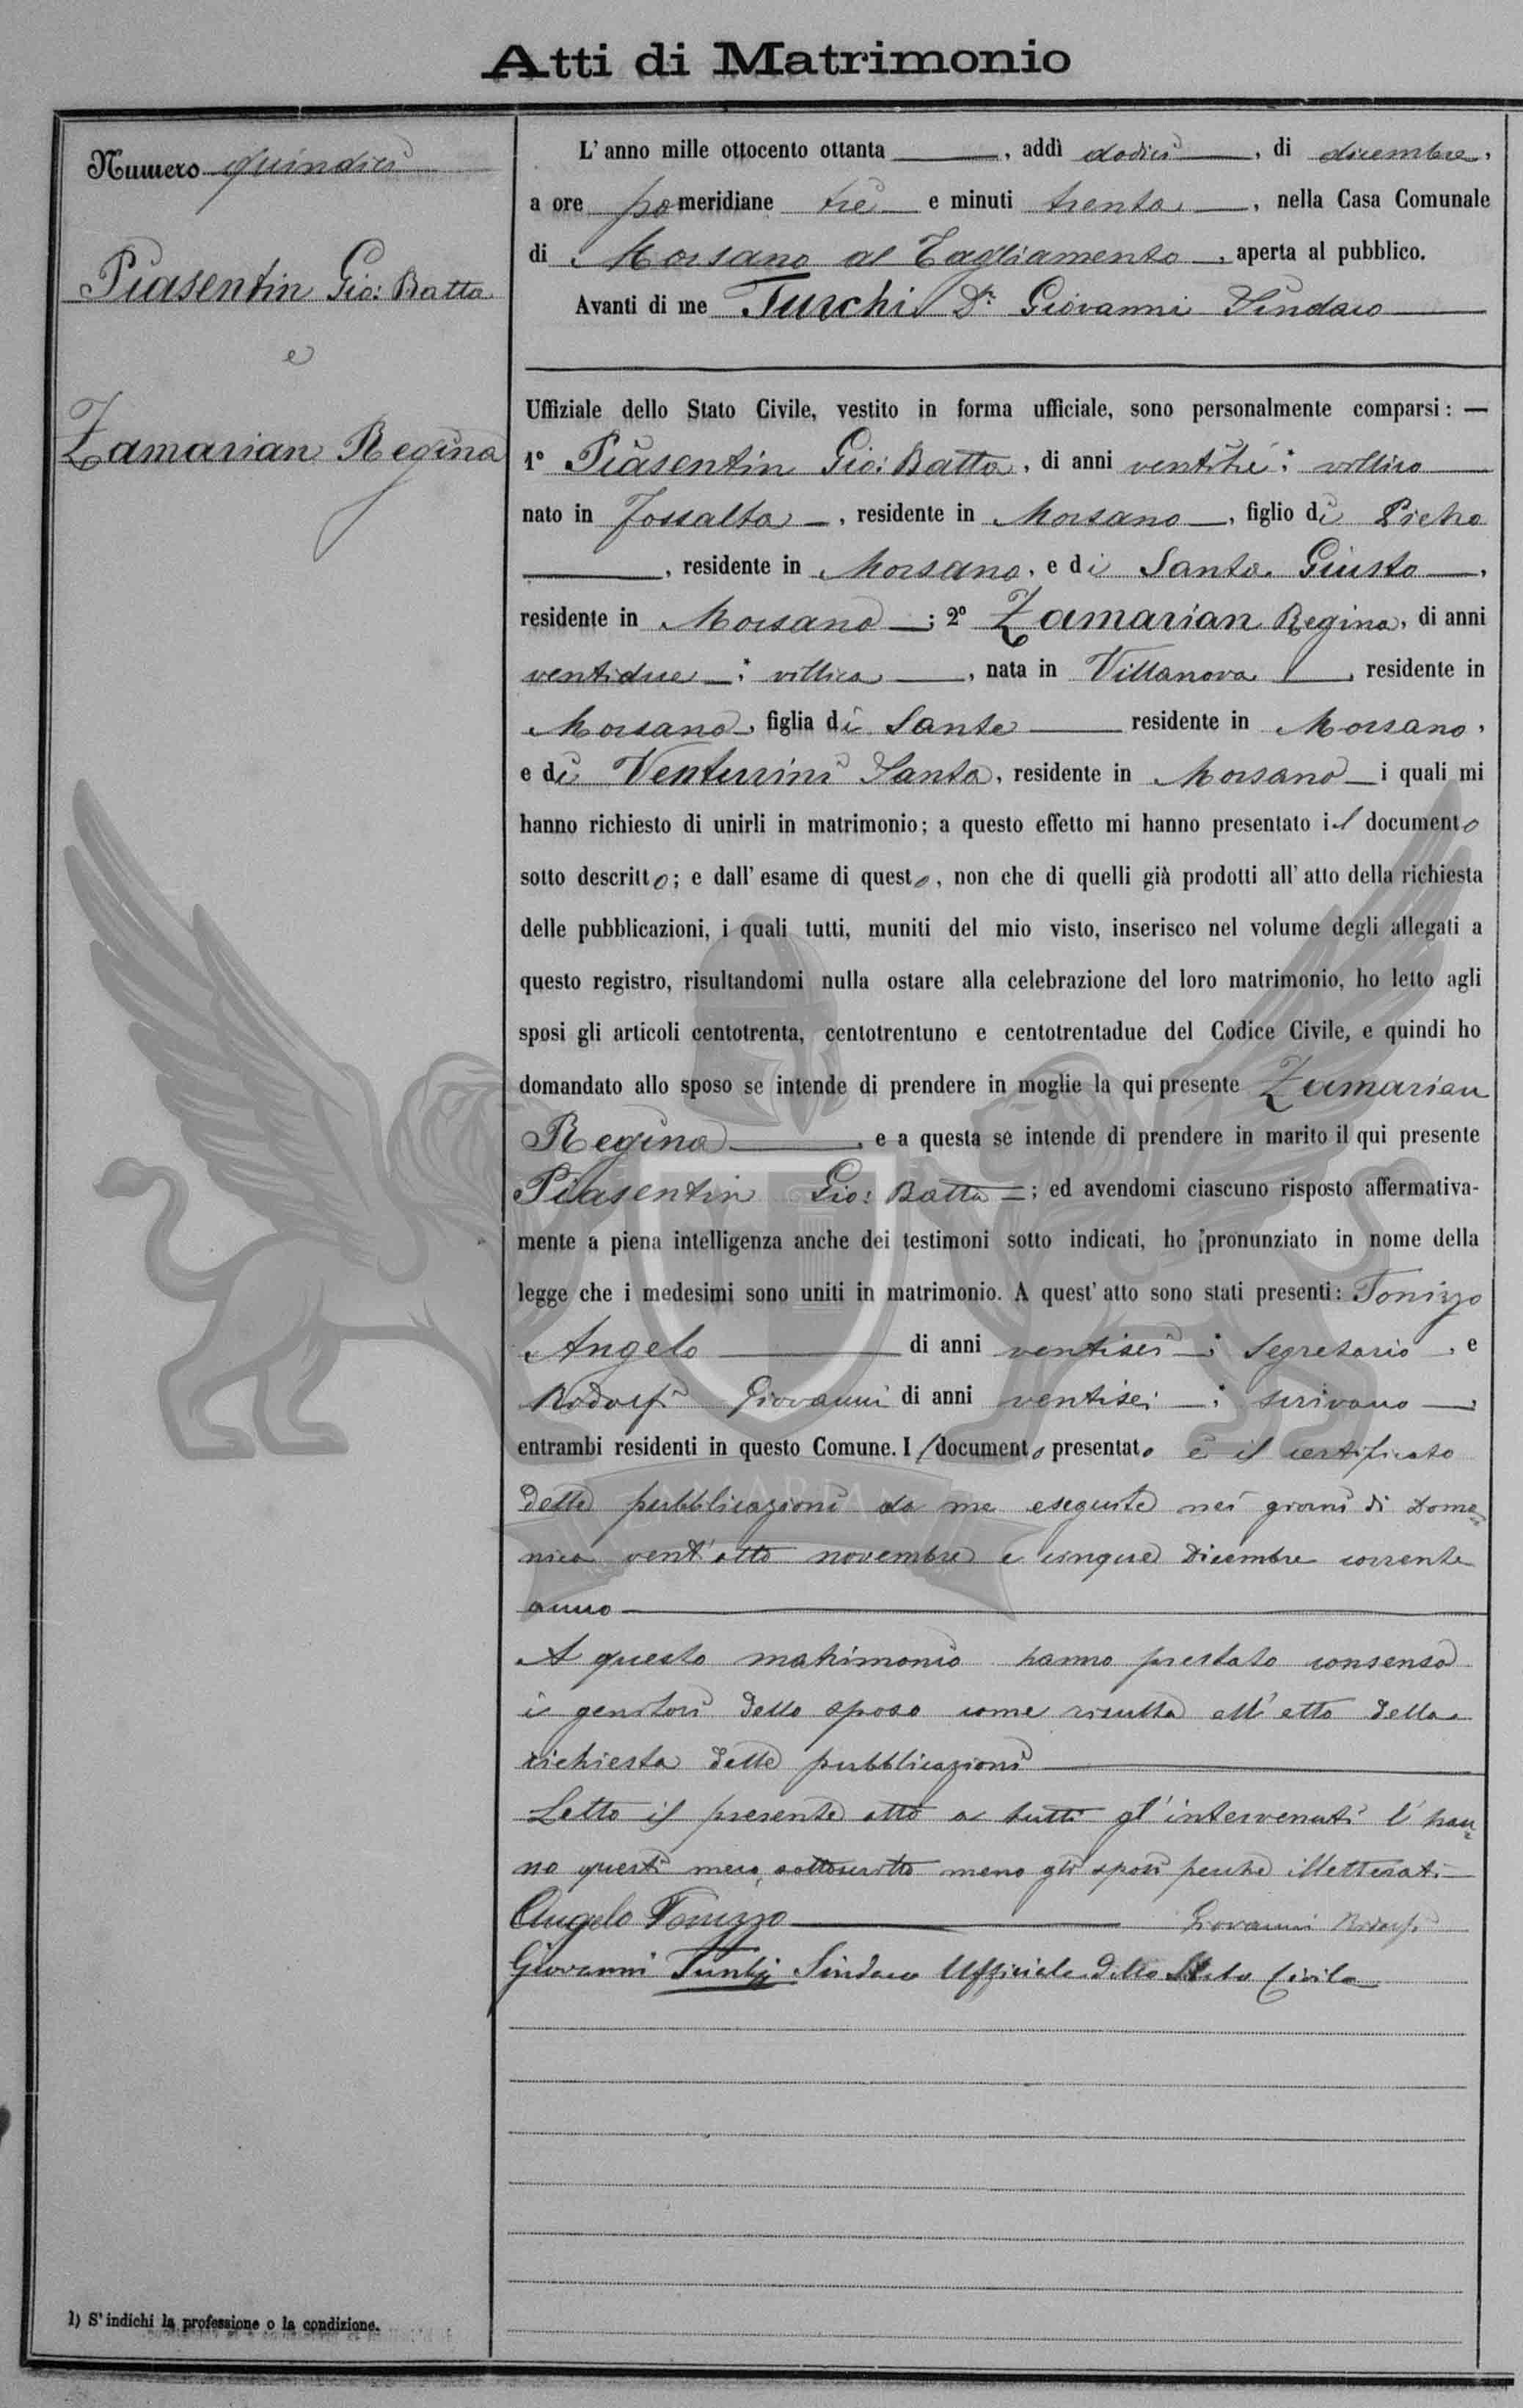 Atti di Matrimonio
Numero quindici
Piasentin Gio: Batta
e
Zamarian Regina
L'anno mille ottocento ottanta , addì dodici , di dicembre,
a ore pomeridiane tre e minuti trenta , nella Casa Comunale
di Morsano al Tagliamento , aperta al pubblico.
Avanti di me Turchi Dr Giovanni Sindaco
Uffiziale dello Stato Civile, vestito in forma ufficiale, sono personalmente comparsi: —
1° Piasentin Gio: Batta, di anni ventitrè: villico
nato in Fossalta , residente in Morsano , figlio di Pietro
, residente in Morsano, e di Santa Giusto ,
residente in Morsano ; 2° Zamarian Regina, di anni
ventidue : villica , nata in Villanova , residente in
Morsano, figlia di Sante residente in Morsano,
e di Venturini Santa, residente in Morsano i quali mi
hanno richiesto di unirli in matrimonio; a questo effetto mi hanno presentato il documento
sotto descritto; e dall'esame di questo, non che di quelli già prodotti all'atto della richiesta
delle pubblicazioni, i quali tutti, muniti del mio visto, inserisco nel volume degli allegati a
questo registro, risultandomi nulla ostare alla celebrazione del loro matrimonio, ho letto agli
sposi gli articoli centotrenta, centotrentuno e centotrentadue del Codice Civile, e quindi ho
domandato allo sposo se intende di prendere in moglie la qui presente Zamarian
Regina , e a questa se intende di prendere in marito il qui presente
Piasentin Gio: Batta ; ed avendomi ciascuno risposto affermativa-
mente a piena intelligenza anche dei testimoni sotto indicati, ho pronunziato in nome della
legge che i medesimi sono uniti in matrimonio. A quest'atto sono stati presenti: Tonizzo
Angelo di anni ventisei : Segretario , e
Rodolfi Giovanni di anni ventisei : scrivano ,
entrambi residenti in questo Comune. Il documento presentato è il certificato
delle pubblicazioni da me eseguite nei giorni di Dome=
nica vent'otto novembre e cinque Dicembre corrente
anno
A questo matrimonio hanno prestato consenso
i genitori dello sposo come risulta all'atto della
richiesta delle pubblicazioni
Letto il presente atto a tutti gl'intervenuti l'han=
no questi meco sottoscritto meno gli sposi perchè illetterati
Angelo Tonizzo Giovanni Rodolfi
Giovanni Turchi Sindaco Uffiziale dello Stato Civile
1) S'indichi la professione o la condizione.
ZAMARIAN